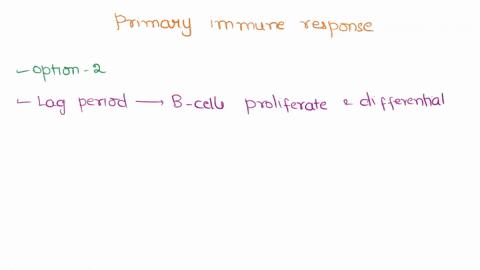 Primary immune response
- option-2
- Lag period → B-cells proliferate & differential